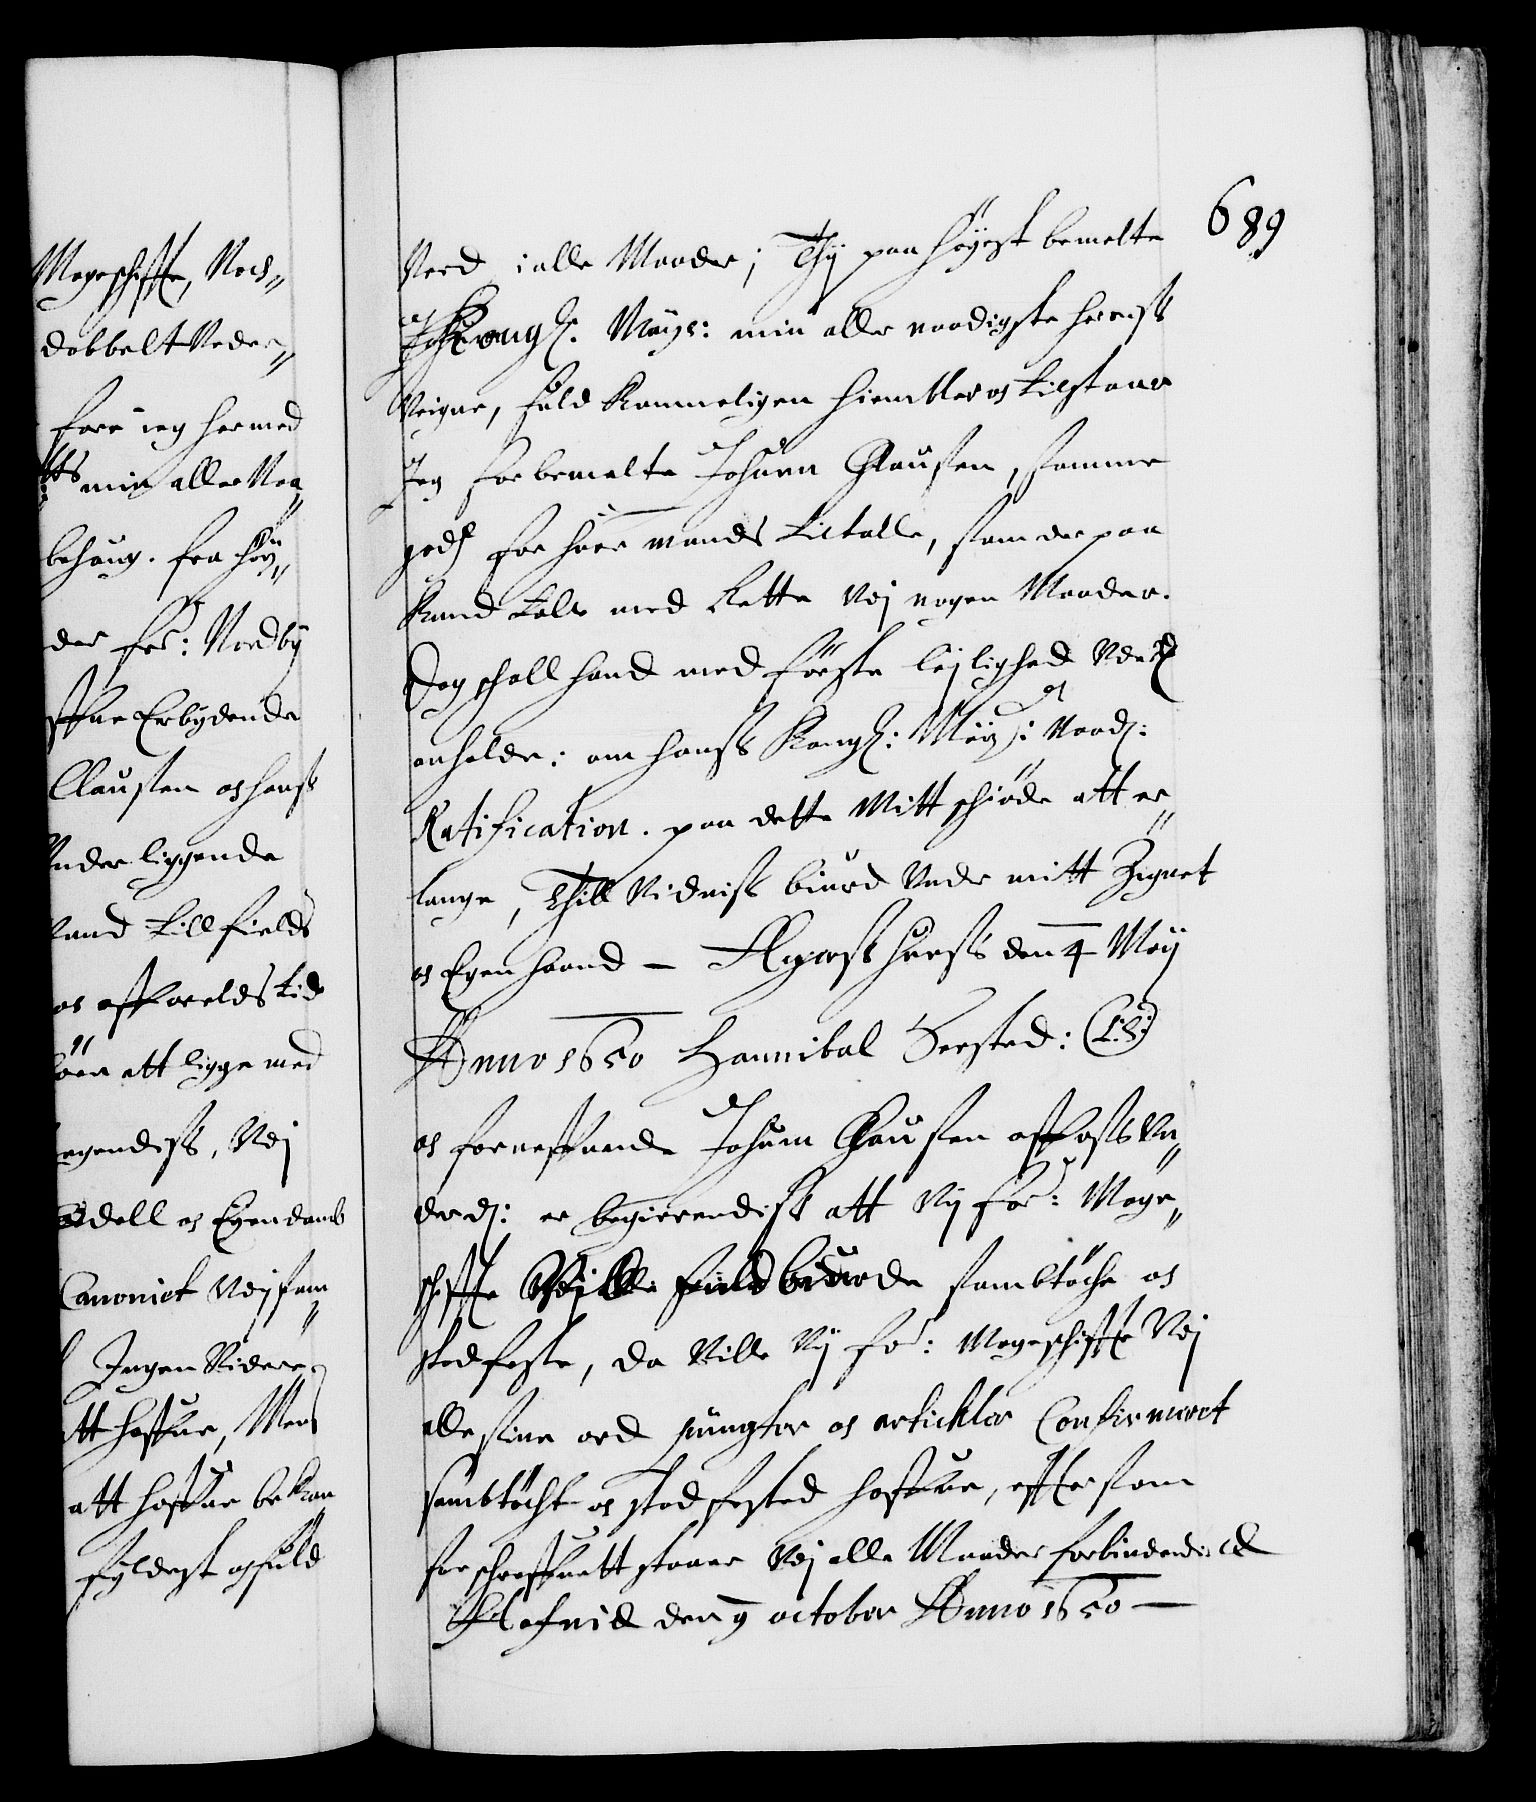 Mageschiffte, Ved„
dobbelt Veder„
fore ieg hermed
min aller Naa„
behæng. fra Høy„
der for: Nordby
Erbydende
Clausen og hans
Under liggende
land till fields
og affvelds tid
att ligge med
egendiss, Udj
Odell og Egendomb
Canoniet Udj som„
Ingen Videre
tt haffue, Men
att haffue bekom
fyldest og fuld
689
Verd i alle Maader; Thj paa høyest bemelte
Kongl. Mayts: min aller naadigste herris
Veigne, fuld kommeligen hiembler og tilstaar
Jeg for bemelte Johann Clausen, samme
godz for huer mands tiltalle, som der paa
Kand tale med Rette Udj nogen Maader.
Dog schall hand med første leylighed Underd
anholde: om hanss Kongl: Mayts: Naad:
Ratification. paa dette Mitt schiøde att er„
lange, Thill Vidnisbiurd Under mitt Zignet
og Egen haand — Agershuess den 4 Maij
Anno 1650 Hannibal Seested: (L:S:)
og fornefnde Johann Clausen aff oss Un„
derd: er begierendis att Vij for: Mage„
schiffte Ville fuldbiurde sambtøche og
stadfeste, da Ville Vij for: Mageschiffte Udj
alle sine ord puncter og articler Confirmeret
sambtøcht og stadfested haffue, effter som
forschreffuett staar Udj alle Maader forbindende etc
Hafniæ den 9 october Anno 1650 —